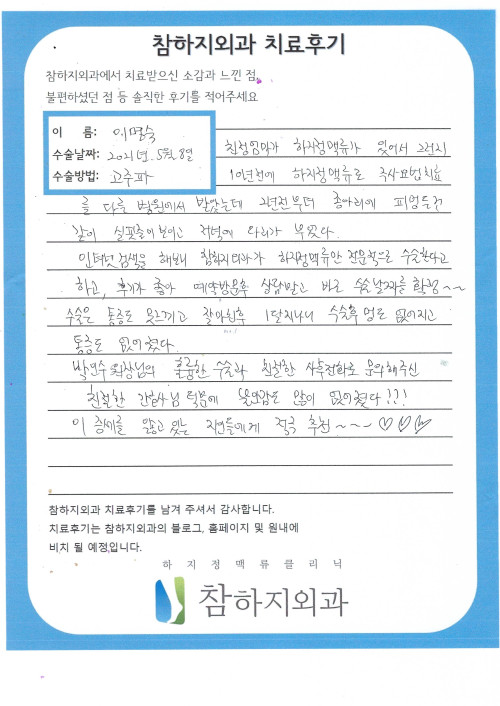 참하지외과 치료후기
참하지외과에서 치료받으신 소감과 느낀 점,
불편하셨던 점 등 솔직한 후기를 적어주세요
이 름: 이명숙
수술날짜: 2021년. 5월. 8일
수술방법: 고주파
친정엄마가 하지정맥류가 있어서 그런지
10년전에 하지정맥류로 주사요법치료
를 다른 병원에서 받았는데 2년전부터 종아리에 피멍든것
같이 실핏줄이 보이고 저녁에 다리가 부었다.
인터넷 검색을 해보니 참하지외과가 하지정맥류만 전문적으로 수술한다고
하고, 후기가 좋아 예약방문후 상담받고 바로 수술날짜를 확정~~
수술은 통증도 못느끼고 잘하친후 1달지나니 수술후 멍도 없어지고
통증도 없어졌다.
박인수 원장님의 훌륭한 수술과 친절한 사후전화로 문의해주신
친절한 간호사님 덕분에 불안감도 많이 없어졌다!!!
이 증세를 앓고 있는 지인들에게 적극 추천~~~♡♡♡
참하지외과 치료후기를 남겨 주셔서 감사합니다.
치료후기는 참하지외과의 블로그, 홈페이지 및 원내에
비치 될 예정입니다.
하지정맥류클리닉
참하지외과